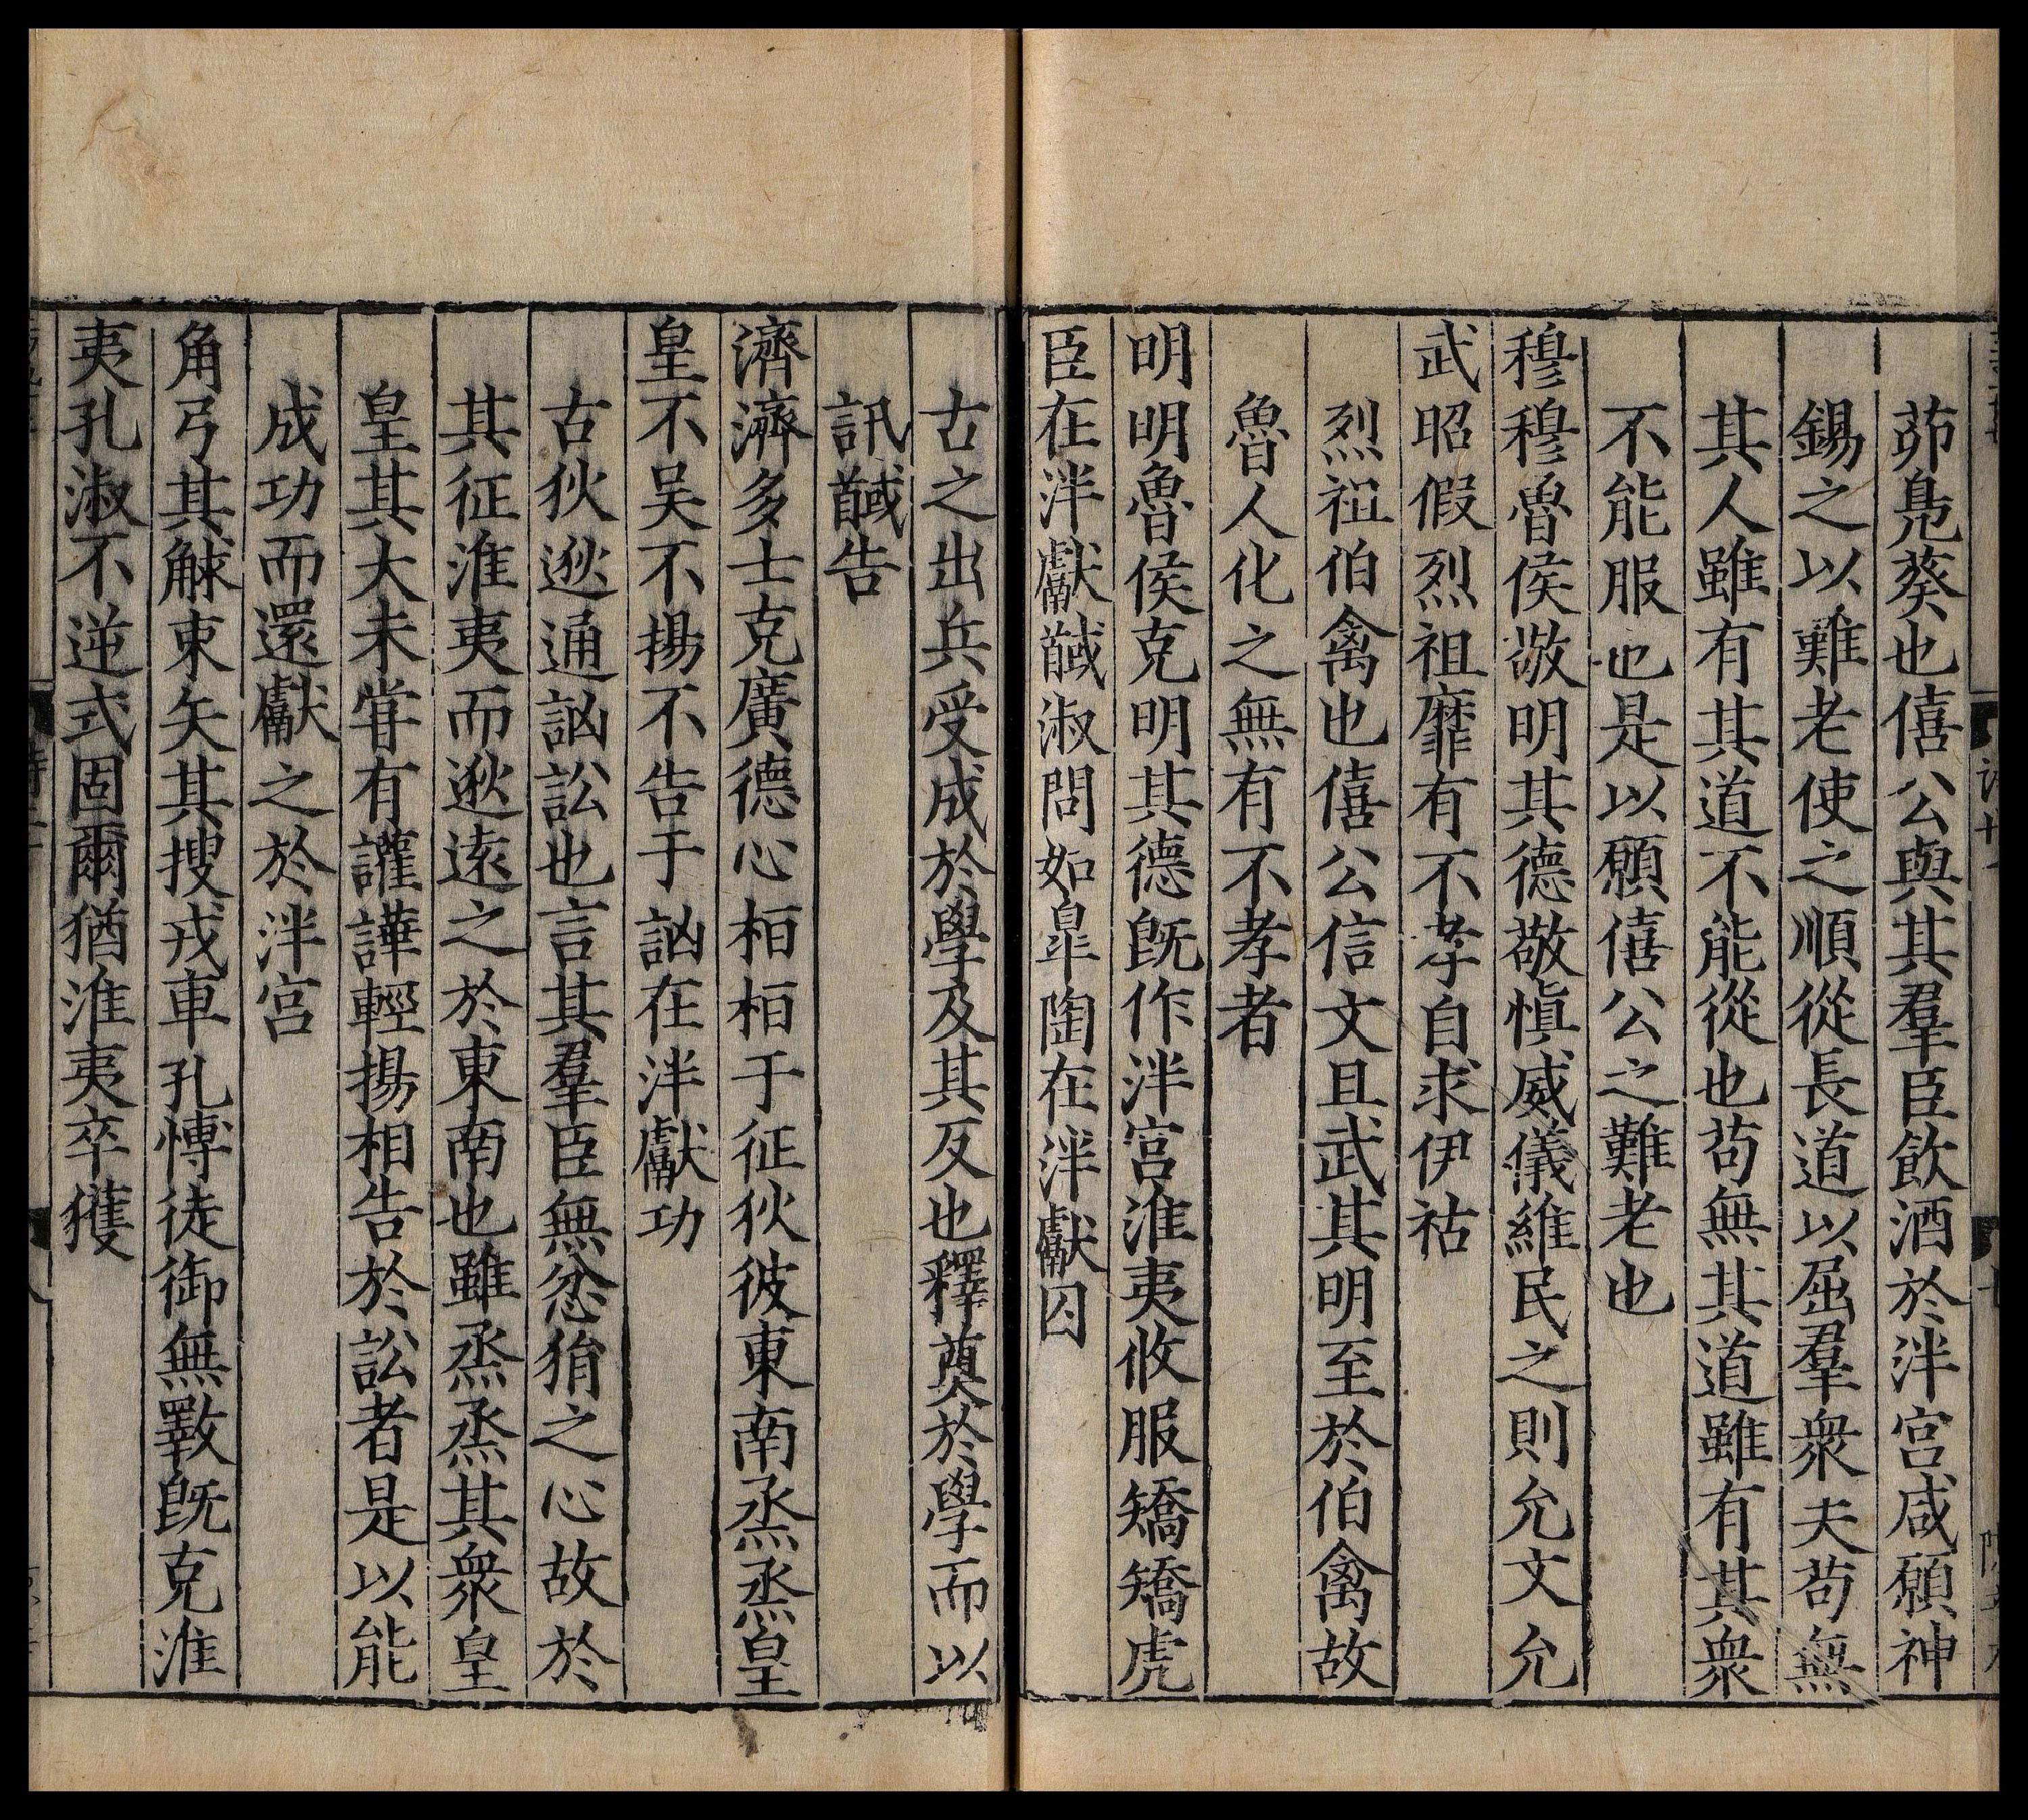 茆鳧葵也僖公與其羣臣飲酒於泮宮咸願神
錫之以難老使之順從長道以屈羣衆夫苟無
其人雖有其道不能從也苟無其道雖有其衆
不能服也是以願僖公之難老也
穆穆魯侯敬明其德敬慎威儀維民之則允文允
武昭假烈祖靡有不孝自求伊祜
烈祖伯禽也僖公信文且武其明至於伯禽故
魯人化之無有不孝者
明明魯侯克明其德旣作泮宮淮夷攸服矯矯虎
臣在泮獻馘淑問如臯陶在泮獻囚
古之出兵受成於學及其反也釋奠於學而以
訊馘告
濟濟多士克廣德心桓桓于征狄彼東南烝烝皇
皇不吴不揚不告于訩在泮獻功
古狄逖通訩訟也言其羣臣無忿狷之心故於
其征淮夷而逖遠之於東南也雖烝烝其衆皇
皇其大未甞有讙譁輕揚相告於訟者是以能
成功而還獻之於泮宮
角弓其觩束矢其搜戎車孔愽徒御無斁旣克淮
夷孔淑不逆式固爾猶淮夷卒獲